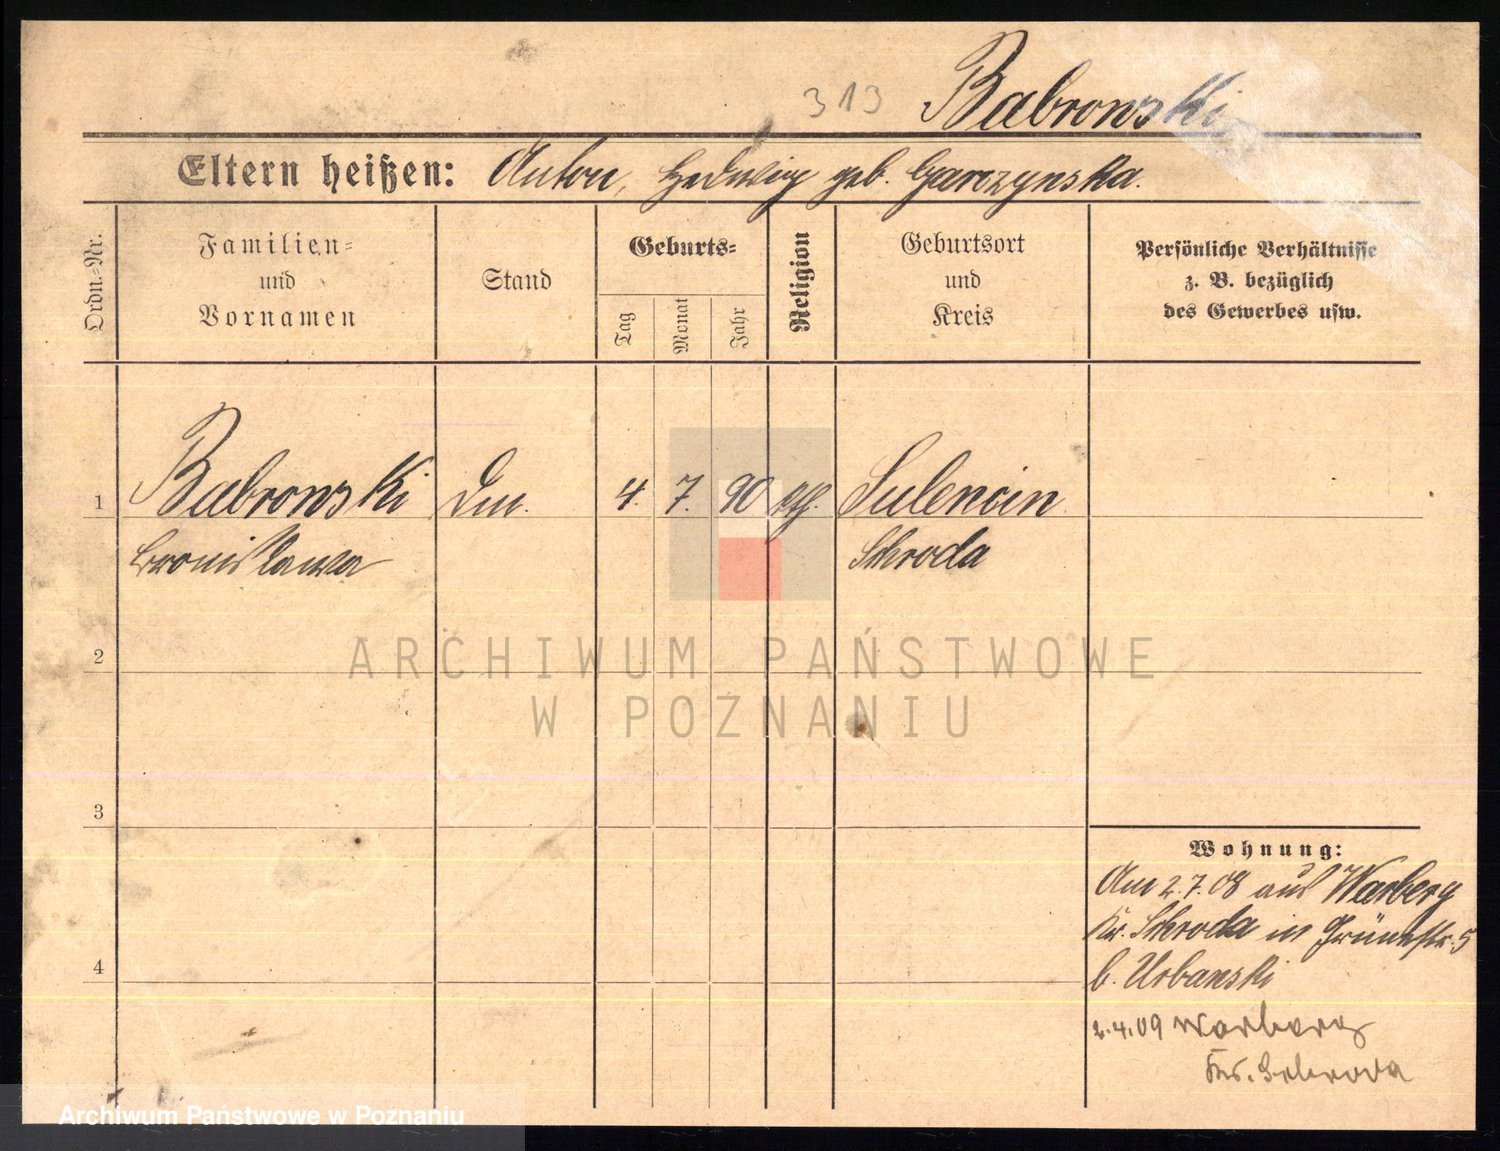 313 Babronski
Eltern heißen: Anton, Hedwig geb. Garczynska.
Ordn.=Nr.
Familien=
und
Vornamen
Stand
Geburts=
Tag
Monat
Jahr
Religion
Geburtsort
und
Kreis
Persönliche Verhältnisse
z. B. bezüglich
des Gewerbes usw.
1 Babronski 4. 7. 90 Sulencin
Bronislawa Schroda
2
3
4
Wohnung:
Am 2.7.08 aus Warberg
Kr. Schroda in Grünestr. 5
b. Urbanski
2.4.09 Warberg
Krs. Schroda
ARCHIWUM PAŃSTWOWE
W POZNANIU
Archiwum Państwowe w Poznaniu